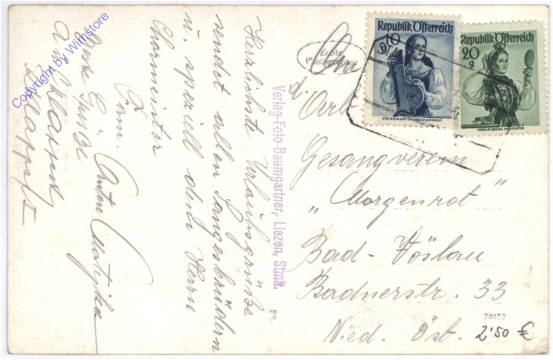 Herzlichste Urlaubsgrüße
sendet allen Sangesbrüdern
u. speziell dem Herrn
Chormeister
Fam. Anton
Beste Grüße
Echte
Photographie
Verlag-Foto-Baumgartner, Liezen, Stmk.
Republik Österreich
10
g
Republik Österreich
20
g
An
Gesangverein
"Morgenrot"
Bad-Vöslau
Badnerstr. 33
70157
Nied. Öst.
2'50 €
Copyright by W1mStore